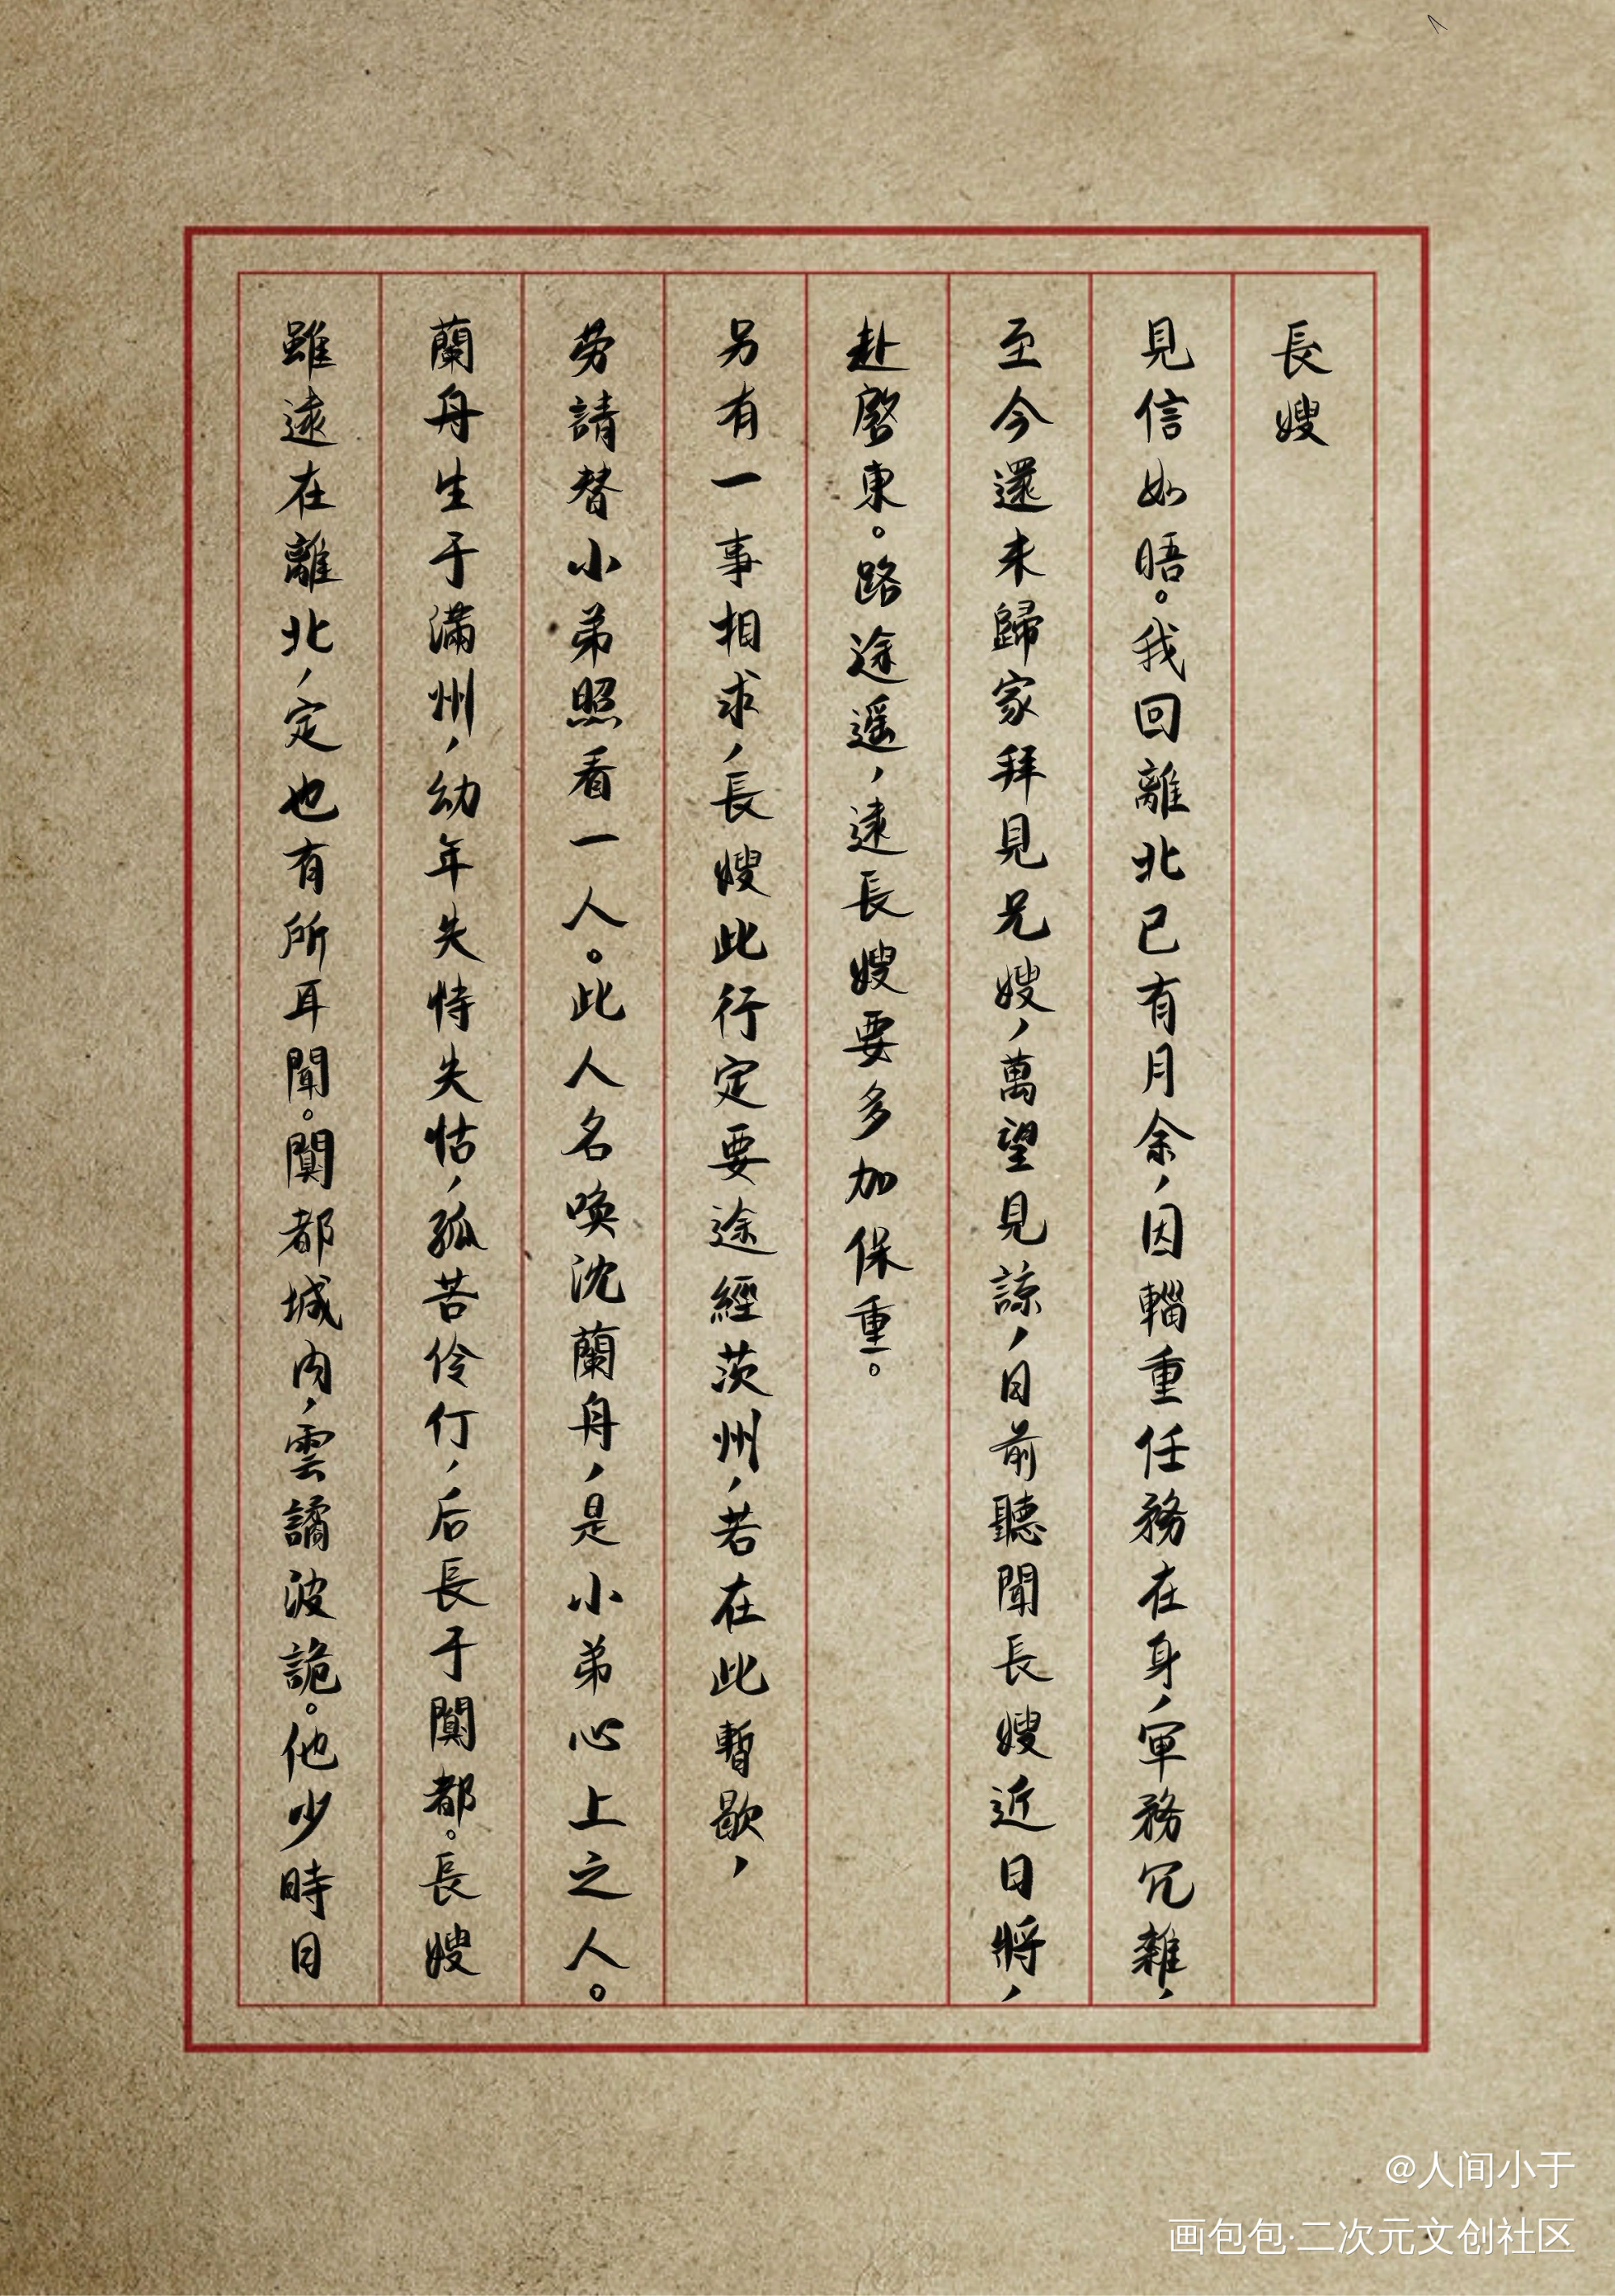 長嫂
見信如晤。我回離北已有月余，因輜重任務在身，軍務冗雜，
至今還未歸家拜見兄嫂，萬望見諒，日前聽聞長嫂近日將，
赴啓東。路途遥，遠長嫂要多加保重。
另有一事相求，長嫂此行定要途經茨州，若在此暫歇，
勞請替小弟照看一人。此人名唤沈蘭舟，是小弟心上之人。
蘭舟生于滿州，幼年失恃失怙，孤苦伶仃，后長于闃都。長嫂
雖遠在離北，定也有所耳聞。闃都城内，雲譎波詭。他少時日
@人间小于
画包包·二次元文创社区